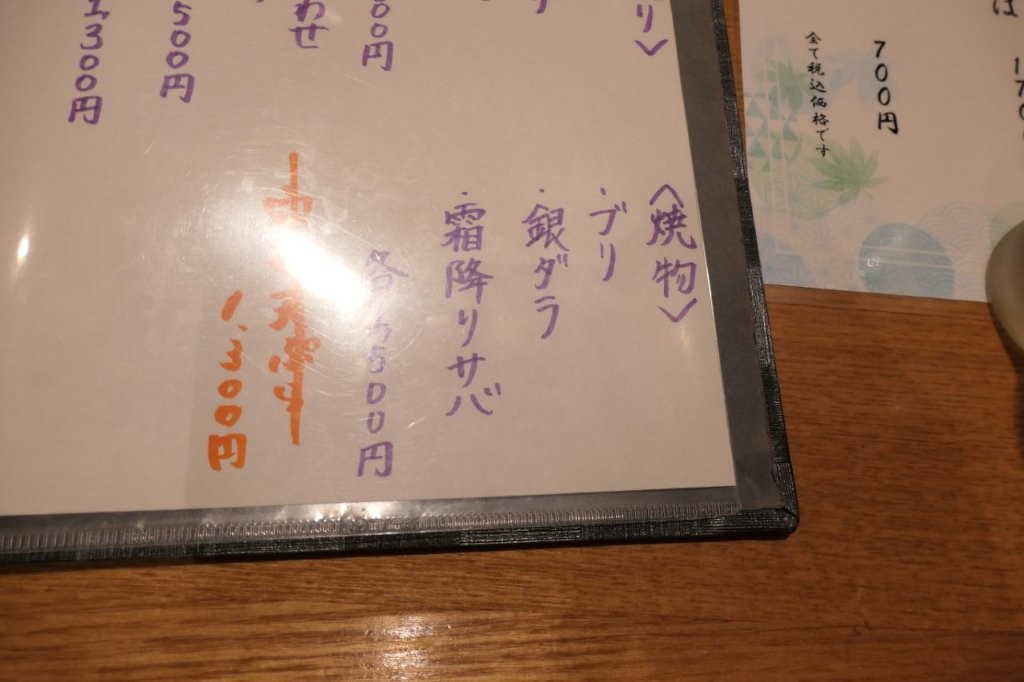 〈焼物〉
・ブリ
・銀ダラ
・霜降りサバ
各1,500円
1,300円
り〉
00円
わせ
500円
1,300円
700円
全て税込価格です
は